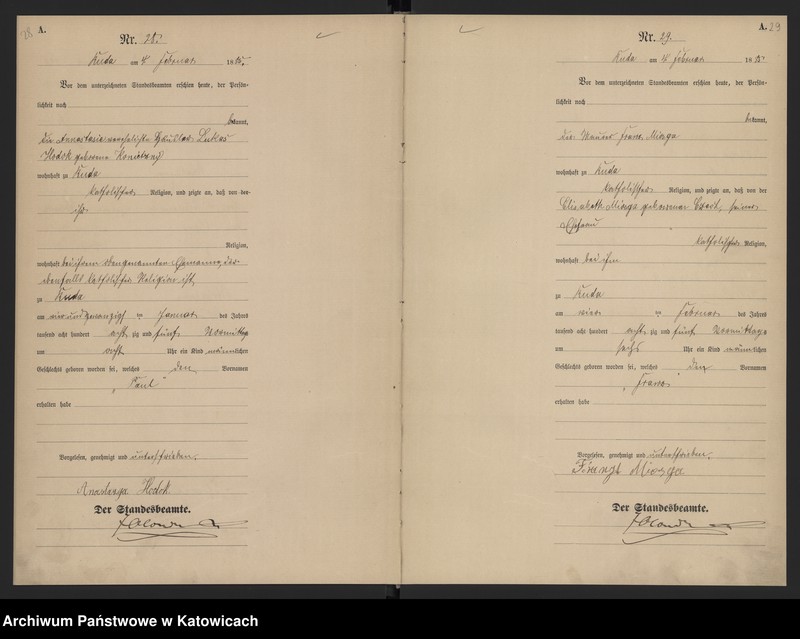 28
A.
Nr. 28.
Ruda am 4 Februar 1885.
Vor dem unterzeichneten Standesbeamten erschien heute, der Persön-
lichkeit nach
bekannt,
die Anastasia verehelichte Häusler Lukas
Hodok geborene
wohnhaft zu Ruda
katholischer Religion, und zeigte an, daß von der-
ihr
Religion,
wohnhaft bei ihrem obengenannten Ehemanne, der
ebenfalls katholischer Religion ist,
zu Ruda
am vierundzwanzigsten Januar des Jahres
tausend acht hundert acht zig und fünf Vormittags
um acht Uhr ein Kind männlichen
Geschlechts geboren worden sei, welches den Vornamen
„Paul"
erhalten habe
Vorgelesen, genehmigt und unterschrieben.
Hodok
Der Standesbeamte.
A. 29
Nr. 29.
Ruda am 4 Februar 1885
Vor dem unterzeichneten Standesbeamten erschien heute, der Persön-
lichkeit nach
bekannt,
der Maurer Franz Miozga
wohnhaft zu Ruda
katholischer Religion, und zeigte an, daß von der
Elisabeth Miozga geborenen seiner
Ehefrau
katholischer Religion,
wohnhaft bei ihm
zu Ruda
am vier Februar des Jahres
tausend acht hundert acht zig und fünf Vormittags
um sechs Uhr ein Kind männlichen
Geschlechts geboren worden sei, welches den Vornamen
„Franz"
erhalten habe
Vorgelesen, genehmigt und unterschrieben.
Miozga
Der Standesbeamte.
Archiwum Państwowe w Katowicach